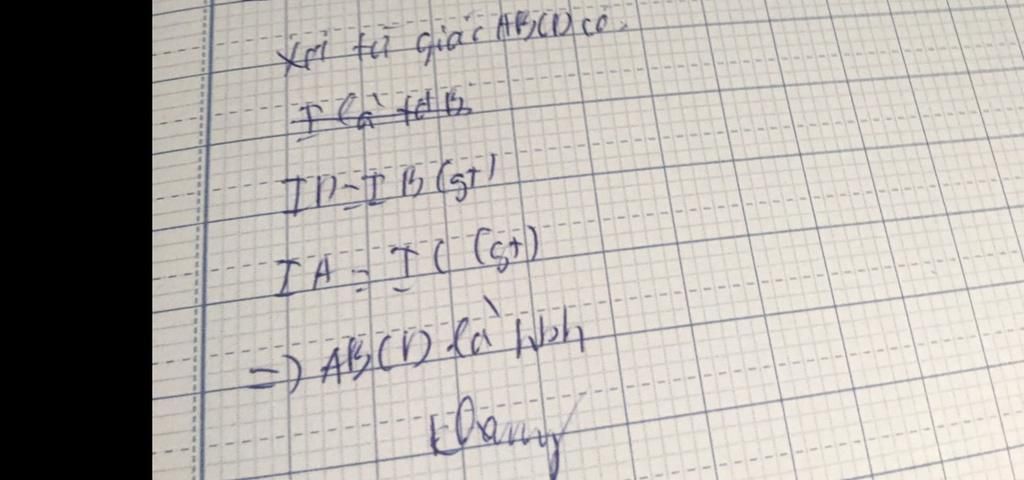 Xét tứ giác ABCD có:
I là tđ B
ID = IB (gt)
IA = IC (gt)
=) ABCD là hbh